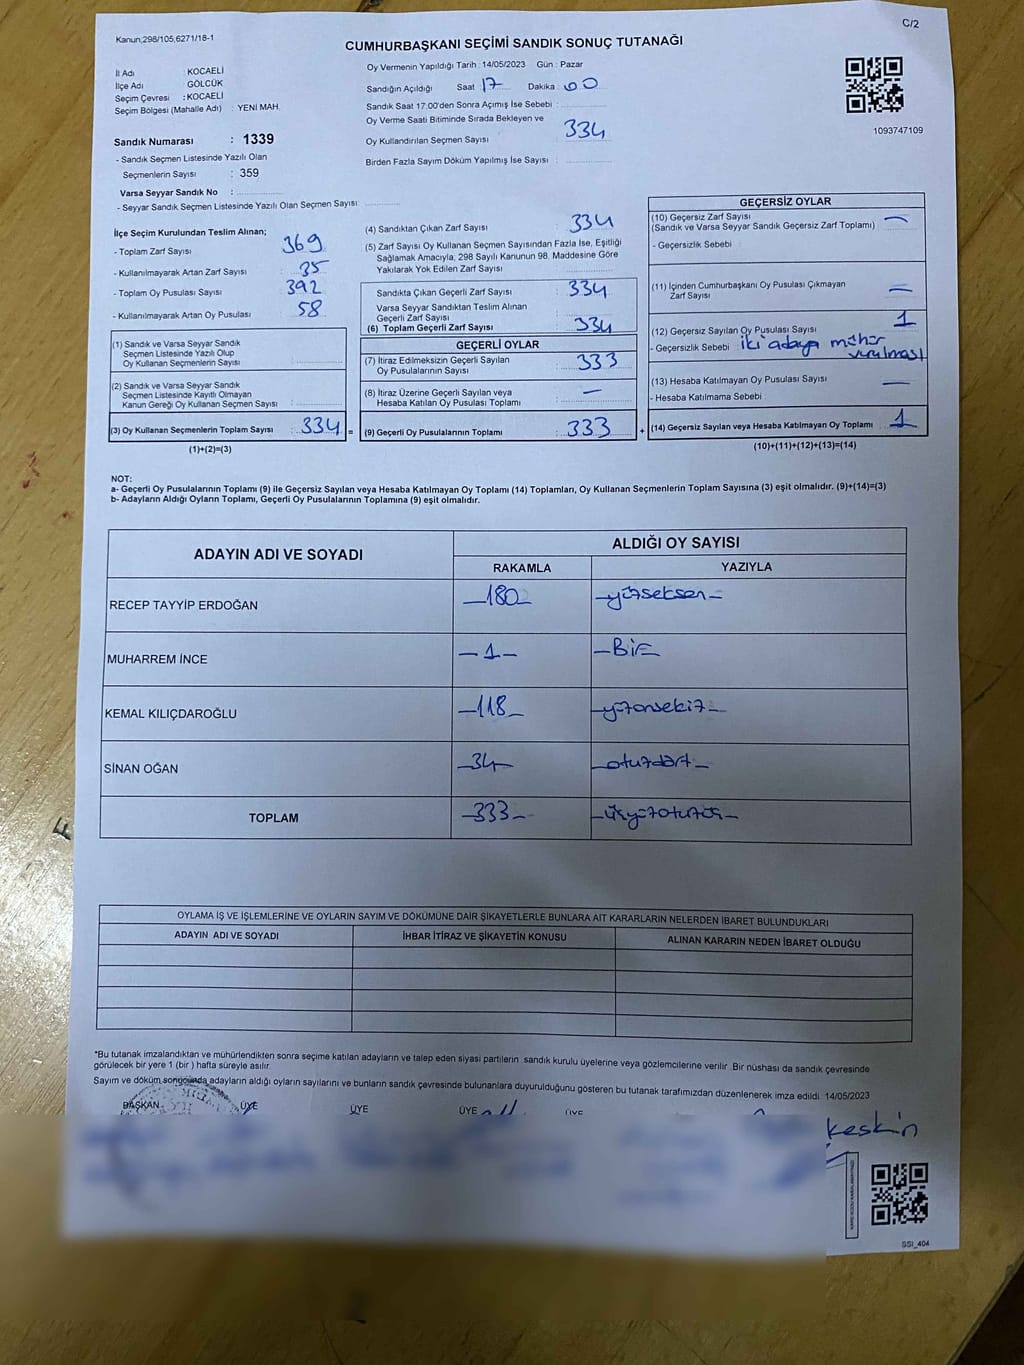 C/2
Kanun,298/105,6271/18-1
CUMHURBAŞKANI SEÇİMİ SANDIK SONUÇ TUTANAĞI
İl Adı : KOCAELİ
İlçe Adı : GÖLCÜK
Seçim Çevresi : KOCAELİ
Seçim Bölgesi (Mahalle Adı) : YENİ MAH.
Sandık Numarası : 1339
- Sandık Seçmen Listesinde Yazılı Olan
Seçmenlerin Sayısı : 359
Varsa Seyyar Sandık No :
- Seyyar Sandık Seçmen Listesinde Yazılı Olan Seçmen Sayısı:
Oy Vermenin Yapıldığı Tarih : 14/05/2023 Gün : Pazar
Sandığın Açıldığı Saat 17 Dakika 00
Sandık Saat 17:00'den Sonra Açımış İse Sebebi :
Oy Verme Saati Bitiminde Sırada Bekleyen ve
Oy Kullandırılan Seçmen Sayısı : 334
Birden Fazla Sayım Döküm Yapılmış İse Sayısı :
1093747109
İlçe Seçim Kurulundan Teslim Alınan;
- Toplam Zarf Sayısı : 369
- Kullanılmayarak Artan Zarf Sayısı : 35
- Toplam Oy Pusulası Sayısı : 392
- Kullanılmayarak Artan Oy Pusulası : 58
(1) Sandık ve Varsa Seyyar Sandık
Seçmen Listesinde Yazılı Olup
Oy Kullanan Seçmenlerin Sayısı :
(2) Sandık ve Varsa Seyyar Sandık
Seçmen Listesinde Kayıtlı Olmayan
Kanun Gereği Oy Kullanan Seçmen Sayısı :
(3) Oy Kullanan Seçmenlerin Toplam Sayısı : 334 =
(1)+(2)=(3)
(4) Sandıktan Çıkan Zarf Sayısı : 334
(5) Zarf Sayısı Oy Kullanan Seçmen Sayısından Fazla İse, Eşitliği
Sağlamak Amacıyla, 298 Sayılı Kanunun 98. Maddesine Göre
Yakılarak Yok Edilen Zarf Sayısı :
Sandıkta Çıkan Geçerli Zarf Sayısı : 334
Varsa Seyyar Sandıktan Teslim Alınan
Geçerli Zarf Sayısı :
(6) Toplam Geçerli Zarf Sayısı : 334
GEÇERLİ OYLAR
(7) İtiraz Edilmeksizin Geçerli Sayılan
Oy Pusulalarının Sayısı : 333
(8) İtiraz Üzerine Geçerli Sayılan veya
Hesaba Katılan Oy Pusulası Toplamı : —
(9) Geçerli Oy Pusulalarının Toplamı : 333 +
GEÇERSİZ OYLAR
(10) Geçersiz Zarf Sayısı : —
(Sandık ve Varsa Seyyar Sandık Geçersiz Zarf Toplamı)
- Geçersizlik Sebebi :
(11) İçinden Cumhurbaşkanı Oy Pusulası Çıkmayan
Zarf Sayısı : —
(12) Geçersiz Sayılan Oy Pusulası Sayısı : 1
- Geçersizlik Sebebi : iki adaya mühür
vurulması
(13) Hesaba Katılmayan Oy Pusulası Sayısı : —
- Hesaba Katılmama Sebebi :
(14) Geçersiz Sayılan veya Hesaba Katılmayan Oy Toplamı : 1
(10)+(11)+(12)+(13)=(14)
NOT:
a- Geçerli Oy Pusulalarının Toplamı (9) ile Geçersiz Sayılan veya Hesaba Katılmayan Oy Toplamı (14) Toplamları, Oy Kullanan Seçmenlerin Toplam Sayısına (3) eşit olmalıdır. (9)+(14)=(3)
b- Adayların Aldığı Oyların Toplamı, Geçerli Oy Pusulalarının Toplamına (9) eşit olmalıdır.
ADAYIN ADI VE SOYADI ALDIĞI OY SAYISI
RAKAMLA YAZIYLA
RECEP TAYYİP ERDOĞAN —180— —yüzseksen—
MUHARREM İNCE —1— —Bir—
KEMAL KILIÇDAROĞLU —118— —yüzonsekiz—
SİNAN OĞAN —34— —otuzdört—
TOPLAM —333— —üçyüzotuzüç—
OYLAMA İŞ VE İŞLEMLERİNE VE OYLARIN SAYIM VE DÖKÜMÜNE DAİR ŞİKAYETLERLE BUNLARA AİT KARARLARIN NELERDEN İBARET BULUNDUKLARI
ADAYIN ADI VE SOYADI İHBAR İTİRAZ VE ŞİKAYETİN KONUSU ALINAN KARARIN NEDEN İBARET OLDUĞU
*Bu tutanak imzalandıktan ve mühürlendikten sonra seçime katılan adayların ve talep eden siyasi partilerin sandık kurulu üyelerine veya gözlemcilerine verilir .Bir nüshası da sandık çevresinde
görülecek bir yere 1 (bir ) hafta süreyle asılır.
Sayım ve döküm sonucunda adayların aldığı oyların sayılarını ve bunların sandık çevresinde bulunanlara duyurulduğunu gösteren bu tutanak tarafımızdan düzenlenerek imza edildi. 14/05/2023
BAŞKAN ÜYE ÜYE ÜYE ÜYE
keskin
SSI_404